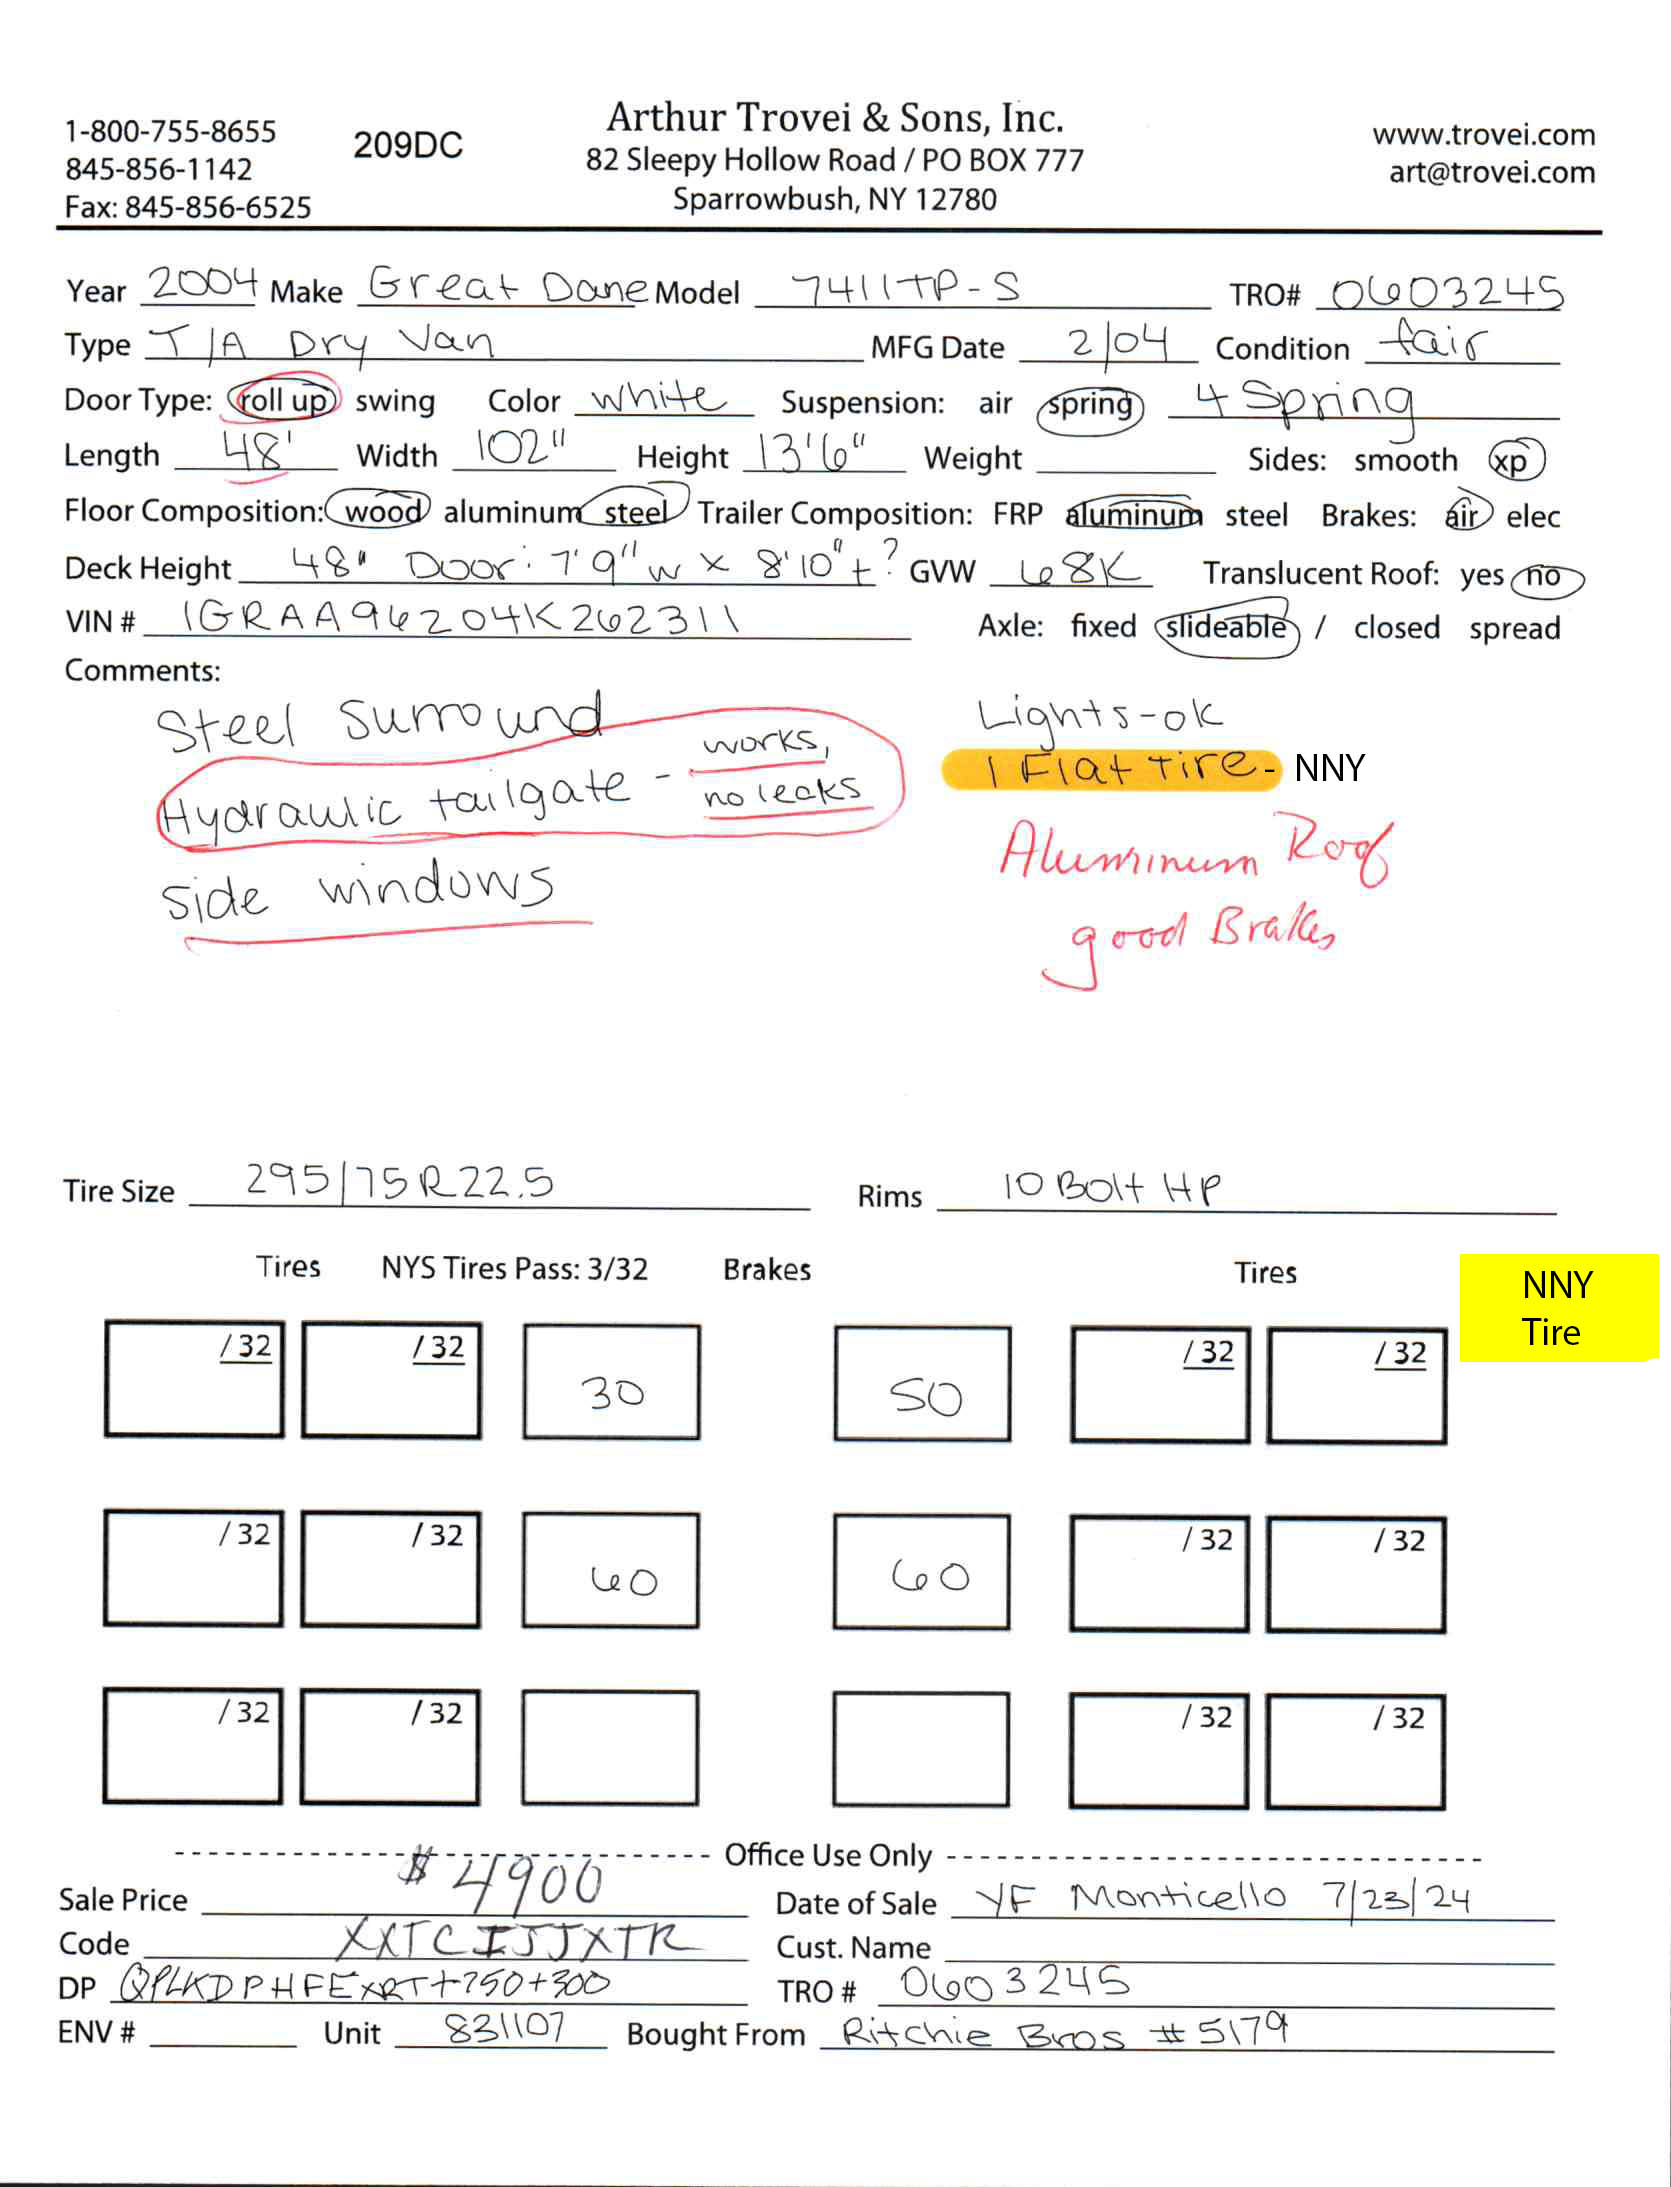 Arthur Trovei & Sons, Inc.
1-800-755-8655 209DC 82 Sleepy Hollow Road / PO BOX 777 www.trovei.com
845-856-1142 Sparrowbush, NY 12780 art@trovei.com
Fax: 845-856-6525
Year 2004 Make Great Dane Model 7411TP-S TRO# 0603245
Type T/A Dry Van MFG Date 2/04 Condition fair
Door Type: roll up swing Color white Suspension: air spring 4 Spring
Length 48' Width 102" Height 13'6" Weight Sides: smooth xp
Floor Composition: wood aluminum steel Trailer Composition: FRP aluminum steel Brakes: air elec
Deck Height 48" Door: 7'9"w x 8'10"+? GVW 68K Translucent Roof: yes no
VIN # 1GRAA96204K262311 Axle: fixed slideable / closed spread
Comments:
Steel Surround Lights-ok
Hydraulic tailgate - works, no leaks 1 Flat tire- NNY
side windows Aluminum Roof
good Brakes
Tire Size 295/75R22.5 Rims 10 Bolt HP
Tires NYS Tires Pass: 3/32 Brakes Tires NNY
Tire
/32 /32 30 50 /32 /32
/32 /32 60 60 /32 /32
/32 /32 /32 /32
Office Use Only
Sale Price $4900 Date of Sale YF Monticello 7/23/24
Code XXTCIJJXTR Cust. Name
DP QPLKDPHFEXRT+750+300 TRO # 0603245
ENV # Unit 831107 Bought From Ritchie Bros #5179